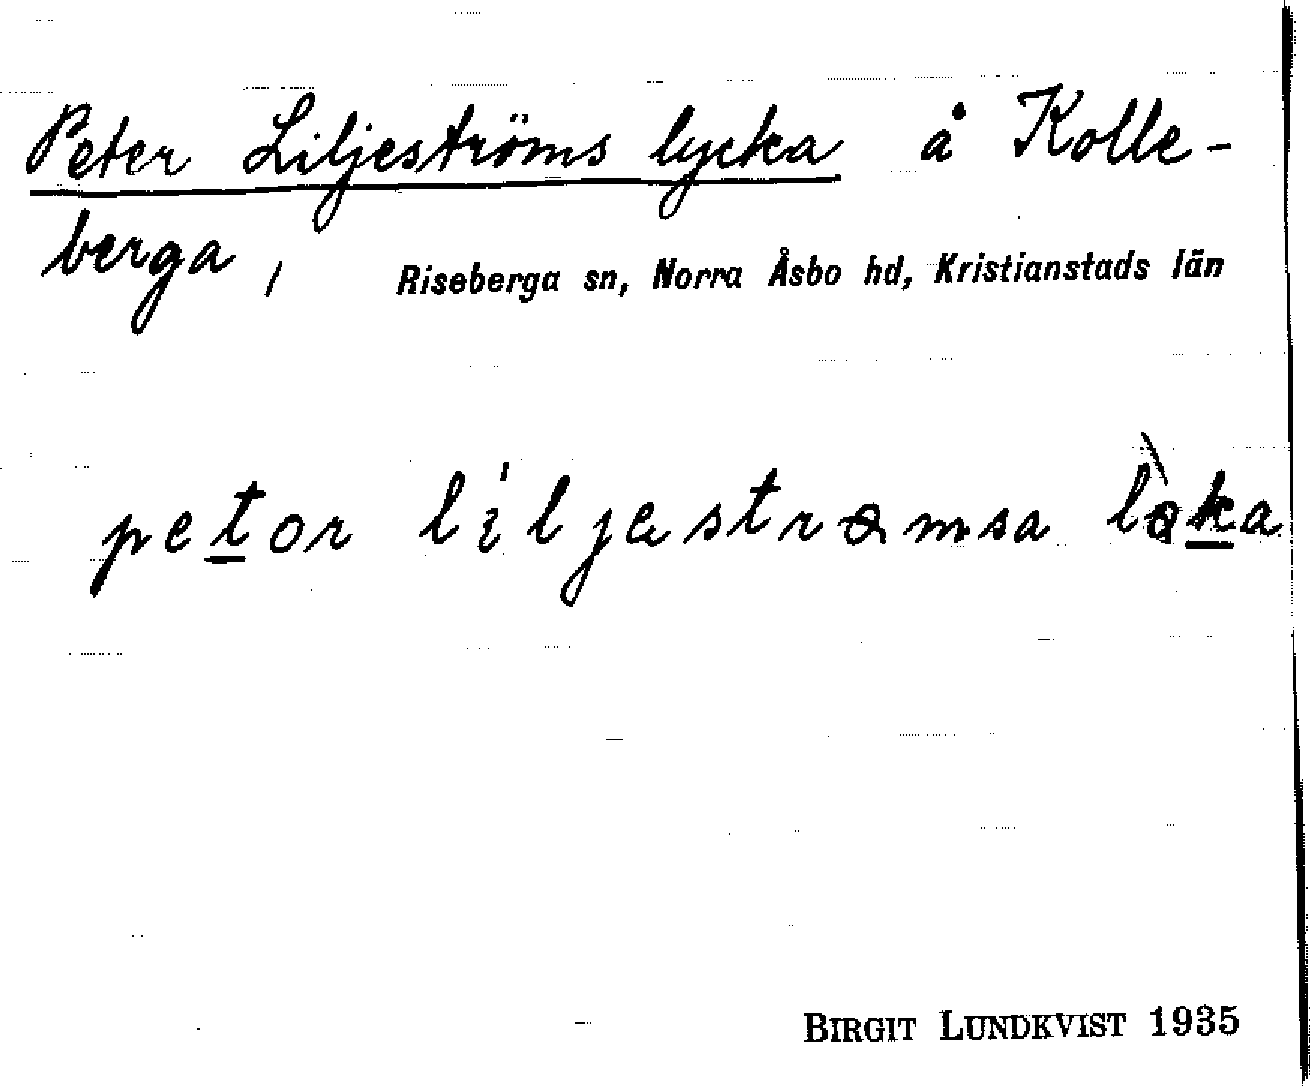 Peter Liljeströms lycka å Kolle-
berga, Riseberga sn, Norra Åsbo hd, Kristianstads län
petor líljestrømsa lø̀ka
BIRGIT LUNDKVIST 1935